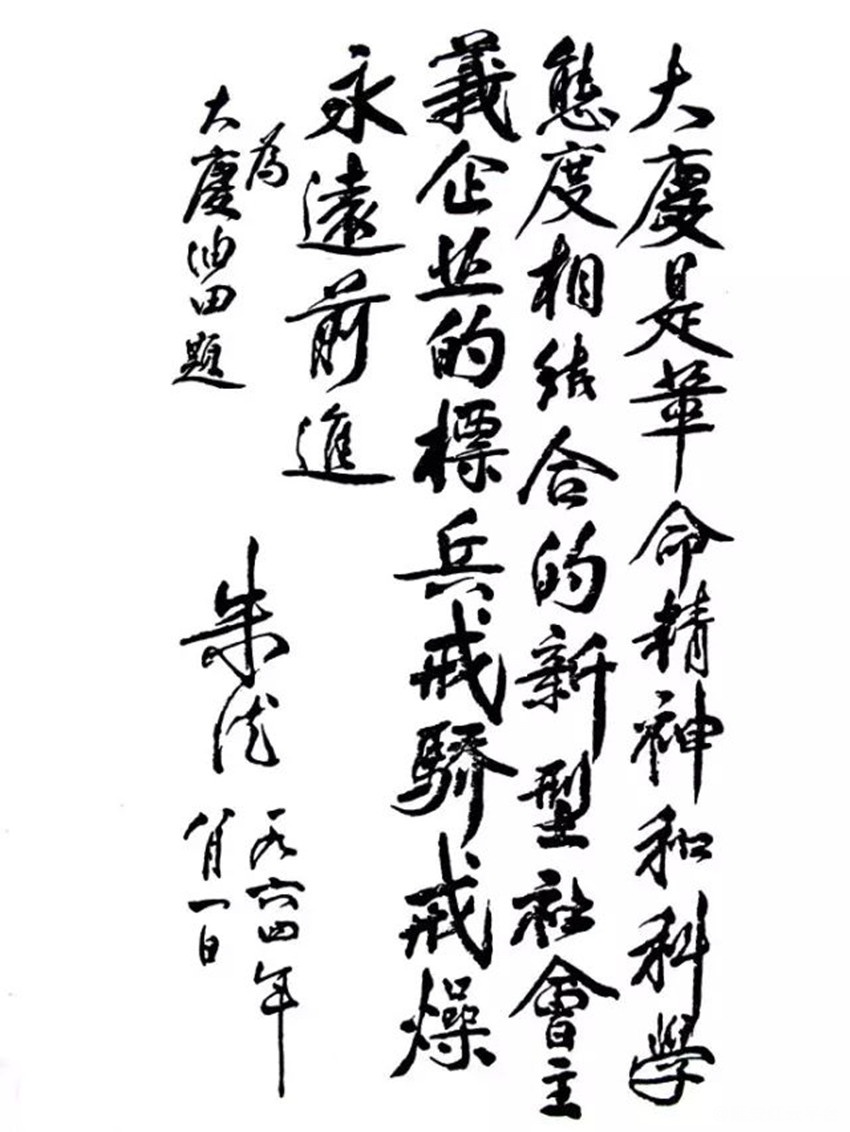 大慶是革命精神和科學
態度相結合的新型社會主
義企业的標兵戒驕戒燥
永遠前進
為
大慶油田題
朱德
一九六四年
八月一日